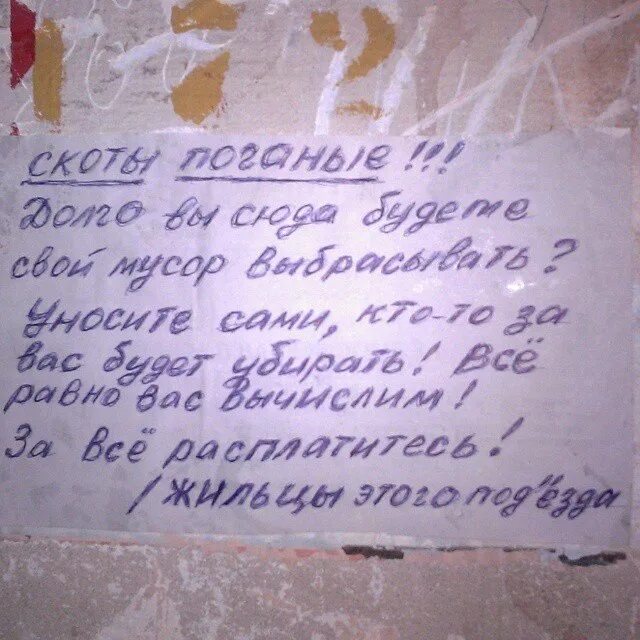 скоты поганые!!!
Долго вы сюда будете
свой мусор выбрасывать?
Уносите сами, кто-то за
вас будет убирать! Всё
равно вас вычислим!
За всё расплатитесь!
/жильцы этого под'ёзда